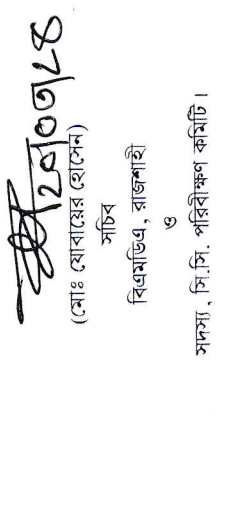 ২০/০৩/২৪
(মোঃ যোবায়ের হোসেন)
সচিব
বিএমডিএ, রাজশাহী
ও
সদস্য, সি.সি. পরিবীক্ষণ কমিটি।